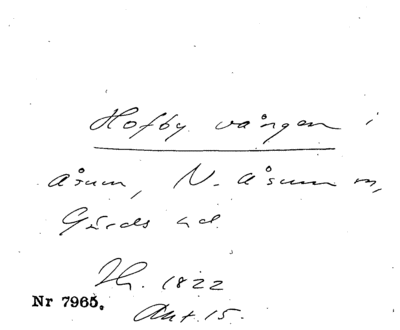 Hofby vången i
Åsum, N. Åsum sn,
Gärds hd.
Th. 1822
Nr 7965.
Akt. 15.